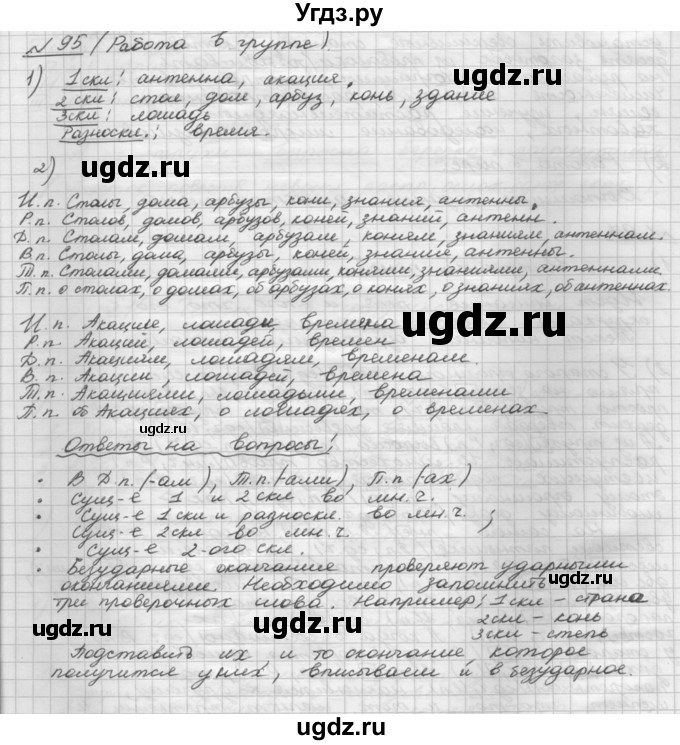 Угдз.ру
№ 95 (Работа в группе).
1) 1скл: антенна, акация.
2 скл: стол, дом, арбуз, конь, здание
3скл: лошадь
Разноскл.: время.
ugdz.ru
ugdz.ru
ugdz.ru
2)
И.п. Столы, дома, арбузы, кони, знания, антенны.
Р.п. Столов, домов, арбузов, коней, знаний, антенн.
Д.п. Столам, домам, арбузам, коням, знаниям, антеннам.
В.п. Столы, дома, арбузы, коней, знания, антенны.
Т.п. Столами, домами, арбузами, конями, знаниями, антеннами.
П.п. о столах, о домах, об арбузах, о конях, о знаниях, об антеннах.
И.п. Акации, лошади, времена
Р.п. Акаций, лошадей, времен
Д.п. Акациям, лошадям, временам.
В.п. Акации, лошадей, времена
Т.п. Акациями, лошадьми, временами
П.п. об Акациях, о лошадях, о временах.
ugdz.ru
ugdz.ru
ugdz.ru
Ответы на вопросы:
• В Д.п. (-ам), Т.п. (-ами), П.п (-ах)
• Сущ-е 1 и 2скл во мн.ч.
• Сущ-е 1скл и разноскл. во мн.ч. ;
Сущ-е 2скл во мн.ч.
• Сущ-е 2-ого скл.
• Безударные окончания проверяют ударными
окончаниями. Необходимо запомнить
три проверочных слова. Например: 1скл - страна
2скл - конь
3скл - степь
Подставить их, и то окончание, которое
получится у них, вписываем и в безударное.
ugdz.ru
ugdz.ru
ugdz.ru
ugdz.ru
ugdz.ru
ugdz.ru